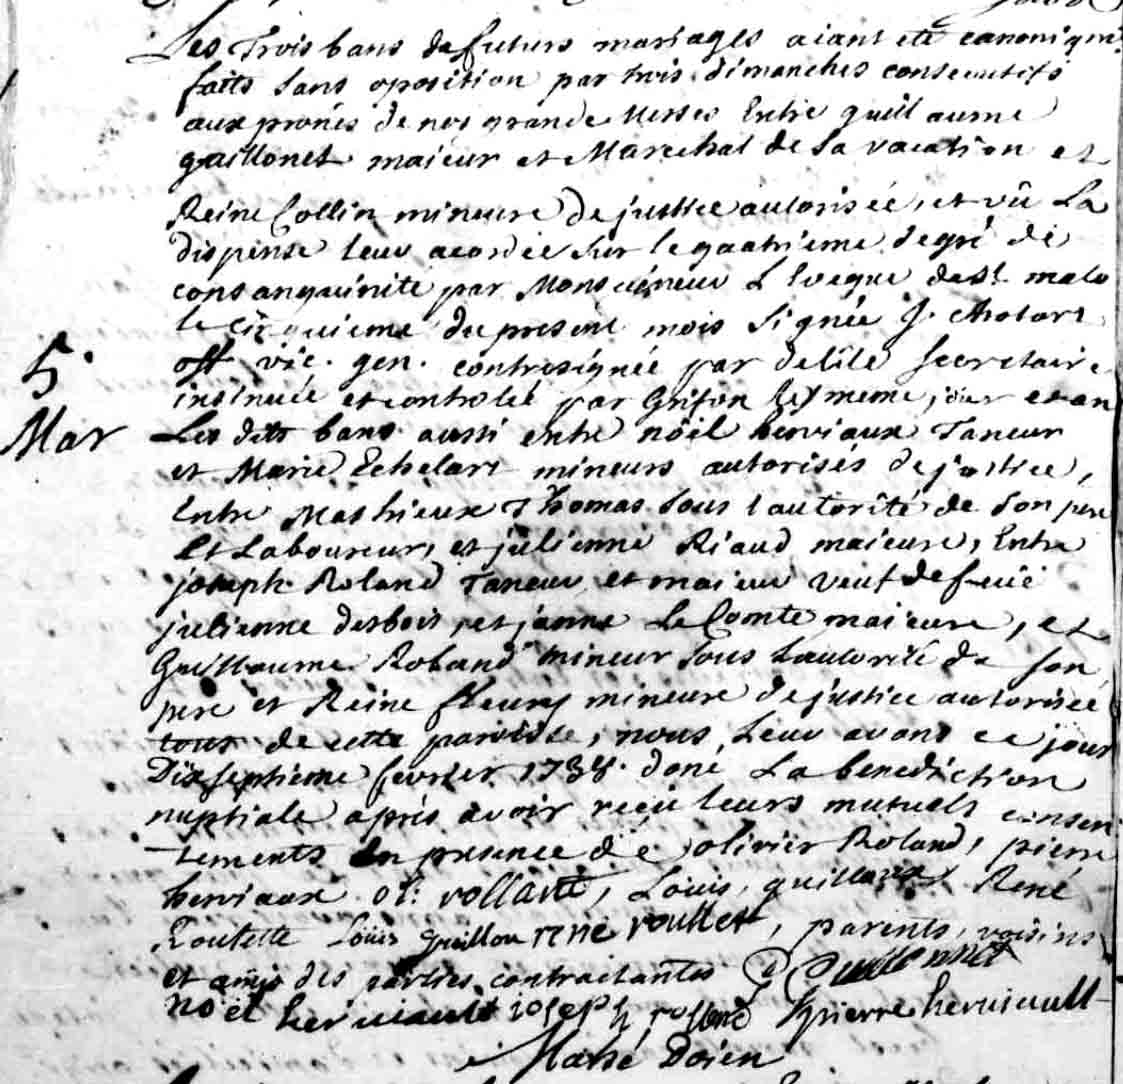 Les Trois bans de futurs mariages aiant eté canoniqm
faits sans oposition par trois dimanches consecutifs
aux prones de nos grande Messes Entre guillaume
guillonet maieur et Marechal de sa vacation et
Reine Collin mineure de justice autorisée, et vû La
dispense leur acordée sur le quatrieme degré de
consanguinité par Monseigneur L'Eveque de St malo
le cinquieme du present mois signée J.
off vic. gen. contresignée par delile secretaire
insinuée et controlée par Grifon les meme jour et an
Les dits bans aussi entre nöel herviaux Taneur
et Marie Echelart mineurs autorisés de justice,
Entre Mathieux Thomas sous l'autorité de son pere
et Laboureur, et julienne Riaud maieure, Entre
joseph Roland Taneur et maieur veuf de feüe
julienne desbois, et janne Le Comte maieure, et
Guillaume Roland mineur sous L'autorité de son
pere et Reine fleury mineure de justice autorisée
tous de cette paroisse, nous Leur avons ce jour
5.
Mar
Dixseptieme fevrier 1738. doné La benediction
nuptiale aprés avoir reçu leurs mutuels consen
tements En presence de olivier Roland, pierre
herviaux ol: rollant, Loüis guilloux René
Roulette Loüis guillou rene roullet, parents, voisins
et amis des parties contractantes G Guillonnet
noel herviault ioseph rolland pierre herviault
Doïen